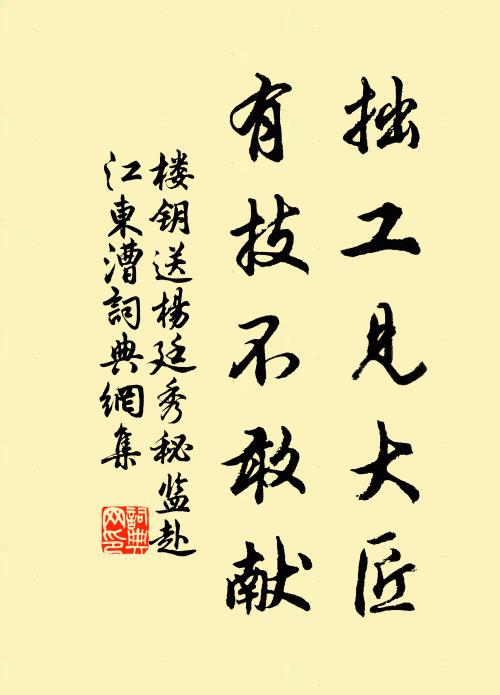 拙工见大匠
有技不敢献
楼钥送杨廷秀秘监赴
江東漕詞典網集
詞典
网印